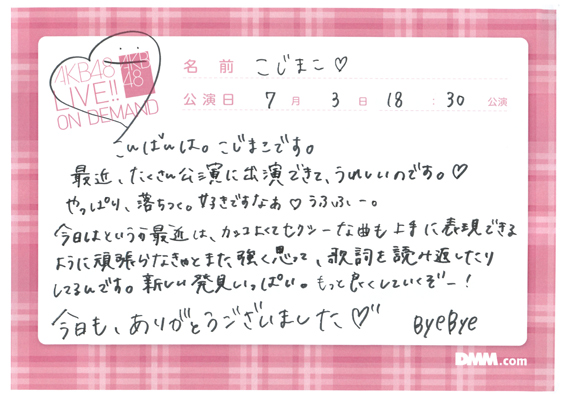 AKB48
LIVE!!
ON DEMAND
AKB
48
名前 こじまこ♡
公演日 7月 3日 18:30 公演
こんばんは。こじまこです。
最近、たくさん公演に出演できて、うれしいのです。♡
やっぱり、落ちつく。好きですなあ♡うふふー。
今日はというか最近は、カッコよくてセクシーな曲も上手に表現できる
ように頑張らなきゃとまた強く思って、歌詞を読み返したり
してるんです。新しい発見いっぱい。もっと良くしていくぞー!
今日も、ありがとうございました♡"
ByeBye
DMM.com